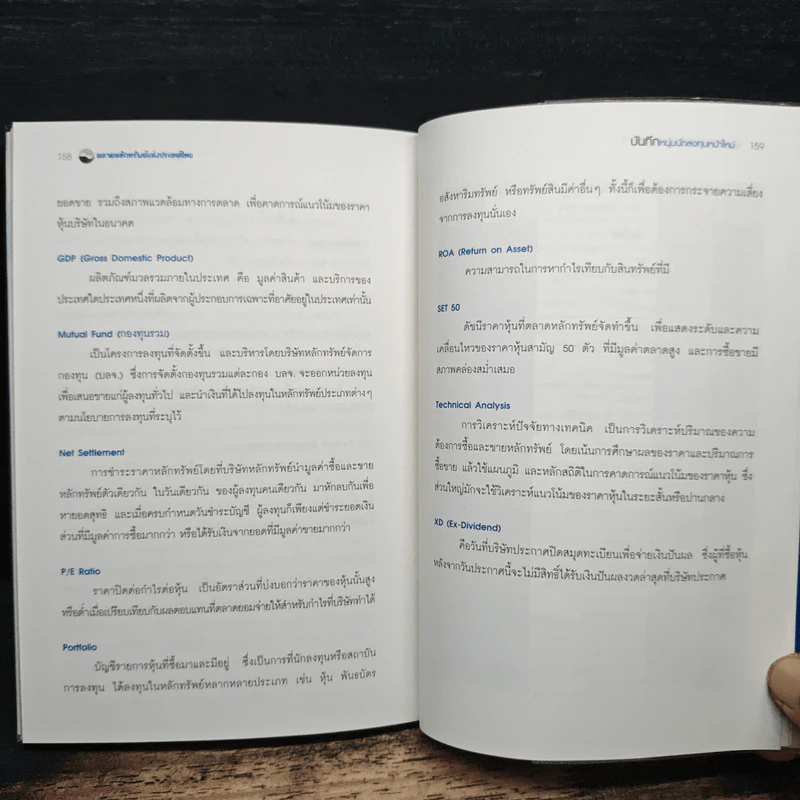 158 ตลาดหลักทรัพย์แห่งประเทศไทย
ยอดขาย รวมถึงสภาพแวดล้อมทางการตลาด เพื่อคาดการณ์แนวโน้มของราคา
หุ้นบริษัทในอนาคต
GDP (Gross Domestic Product)
ผลิตภัณฑ์มวลรวมภายในประเทศ คือ มูลค่าสินค้า และบริการของ
ประเทศใดประเทศหนึ่งที่ผลิตจากผู้ประกอบการเฉพาะที่อาศัยอยู่ในประเทศเท่านั้น
Mutual Fund (กองทุนรวม)
เป็นโครงการลงทุนที่จัดตั้งขึ้น และบริหารโดยบริษัทหลักทรัพย์จัดการ
กองทุน (บลจ.) ซึ่งการจัดตั้งกองทุนรวมแต่ละกอง บลจ. จะออกหน่วยลงทุน
เพื่อเสนอขายแก่ผู้ลงทุนทั่วไป และนำเงินที่ได้ไปลงทุนในหลักทรัพย์ประเภทต่างๆ
ตามนโยบายการลงทุนที่ระบุไว้
Net Settlement
การชำระราคาหลักทรัพย์โดยที่บริษัทหลักทรัพย์นำมูลค่าซื้อและขาย
หลักทรัพย์ตัวเดียวกัน ในวันเดียวกัน ของผู้ลงทุนคนเดียวกัน มาหักลบกันเพื่อ
หายอดสุทธิ และเมื่อครบกำหนดวันชำระบัญชี ผู้ลงทุนก็เพียงแต่ชำระยอดเงิน
ส่วนที่มีมูลค่าการซื้อมากกว่า หรือได้รับเงินจากยอดที่มีมูลค่าขายมากกว่า
P/E Ratio
ราคาปิดต่อกำไรต่อหุ้น เป็นอัตราส่วนที่บ่งบอกว่าราคาของหุ้นนั้นสูง
หรือต่ำเมื่อเปรียบเทียบกับผลตอบแทนที่ตลาดยอมจ่ายให้สำหรับกำไรที่บริษัททำได้
Portfolio
บัญชีรายการหุ้นที่ซื้อมาและมีอยู่ ซึ่งเป็นการที่นักลงทุนหรือสถาบัน
การลงทุน ได้ลงทุนในหลักทรัพย์หลากหลายประเภท เช่น หุ้น พันธบัตร
บันทึกหนุ่มนักลงทุนหน้าใหม่ 159
อสังหาริมทรัพย์ หรือทรัพย์สินมีค่าอื่นๆ ทั้งนี้ก็เพื่อต้องการกระจายความเสี่ยง
จากการลงทุนนั่นเอง
ROA (Return on Asset)
ความสามารถในการหากำไรเทียบกับสินทรัพย์ที่มี
SET 50
ดัชนีราคาหุ้นที่ตลาดหลักทรัพย์จัดทำขึ้น เพื่อแสดงระดับและความ
เคลื่อนไหวของราคาหุ้นสามัญ 50 ตัว ที่มีมูลค่าตลาดสูง และการซื้อขายมี
สภาพคล่องสม่ำเสมอ
Technical Analysis
การวิเคราะห์ปัจจัยทางเทคนิค เป็นการวิเคราะห์ปริมาณของความ
ต้องการซื้อและขายหลักทรัพย์ โดยเน้นการศึกษาผลของราคาและปริมาณการ
ซื้อขาย แล้วใช้แผนภูมิ และหลักสถิติในการคาดการณ์แนวโน้มของราคาหุ้น ซึ่ง
ส่วนใหญ่มักจะใช้วิเคราะห์แนวโน้มของราคาหุ้นในระยะสั้นหรือปานกลาง
XD (Ex-Dividend)
คือวันที่บริษัทประกาศปิดสมุดทะเบียนเพื่อจ่ายเงินปันผล ซึ่งผู้ที่ซื้อหุ้น
หลังจากวันประกาศนี้จะไม่มีสิทธิ์ได้รับเงินปันผลงวดล่าสุดที่บริษัทประกาศ